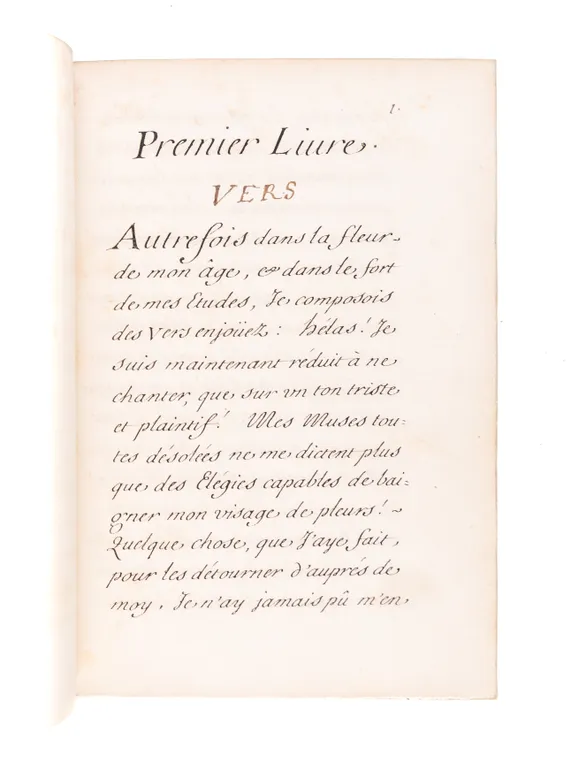 1.
Premier Liure.
VERS
Autrefois dans la fleur
de mon âge, & dans le fort
de mes Etudes, Je composois
des Vers enjoüez : hélas! Je
suis maintenant réduit à ne
chanter, que sur vn ton triste
et plaintif! Mes Muses tou=
tes désolées ne me dictent plus
que des Elégies capables de bai=
gner mon visage de pleurs! ~
Quelque chose, que J'aye fait,
pour les détourner d'auprés de
moy, Je n'ay jamais pû m'en